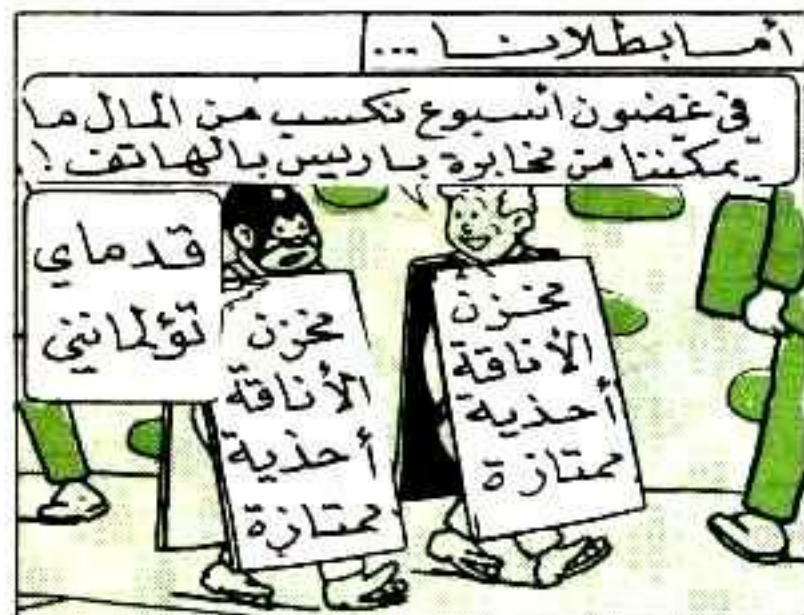 أما بطلانا ...
في غضون أسبوع نكسب من المال ما
يمكّننا من مخابرة باريس بالهاتف !
قدماي
تؤلمانني
مخزن
الأناقة
أحذية
ممتازة
مخزن
الأناقة
أحذية
ممتازة